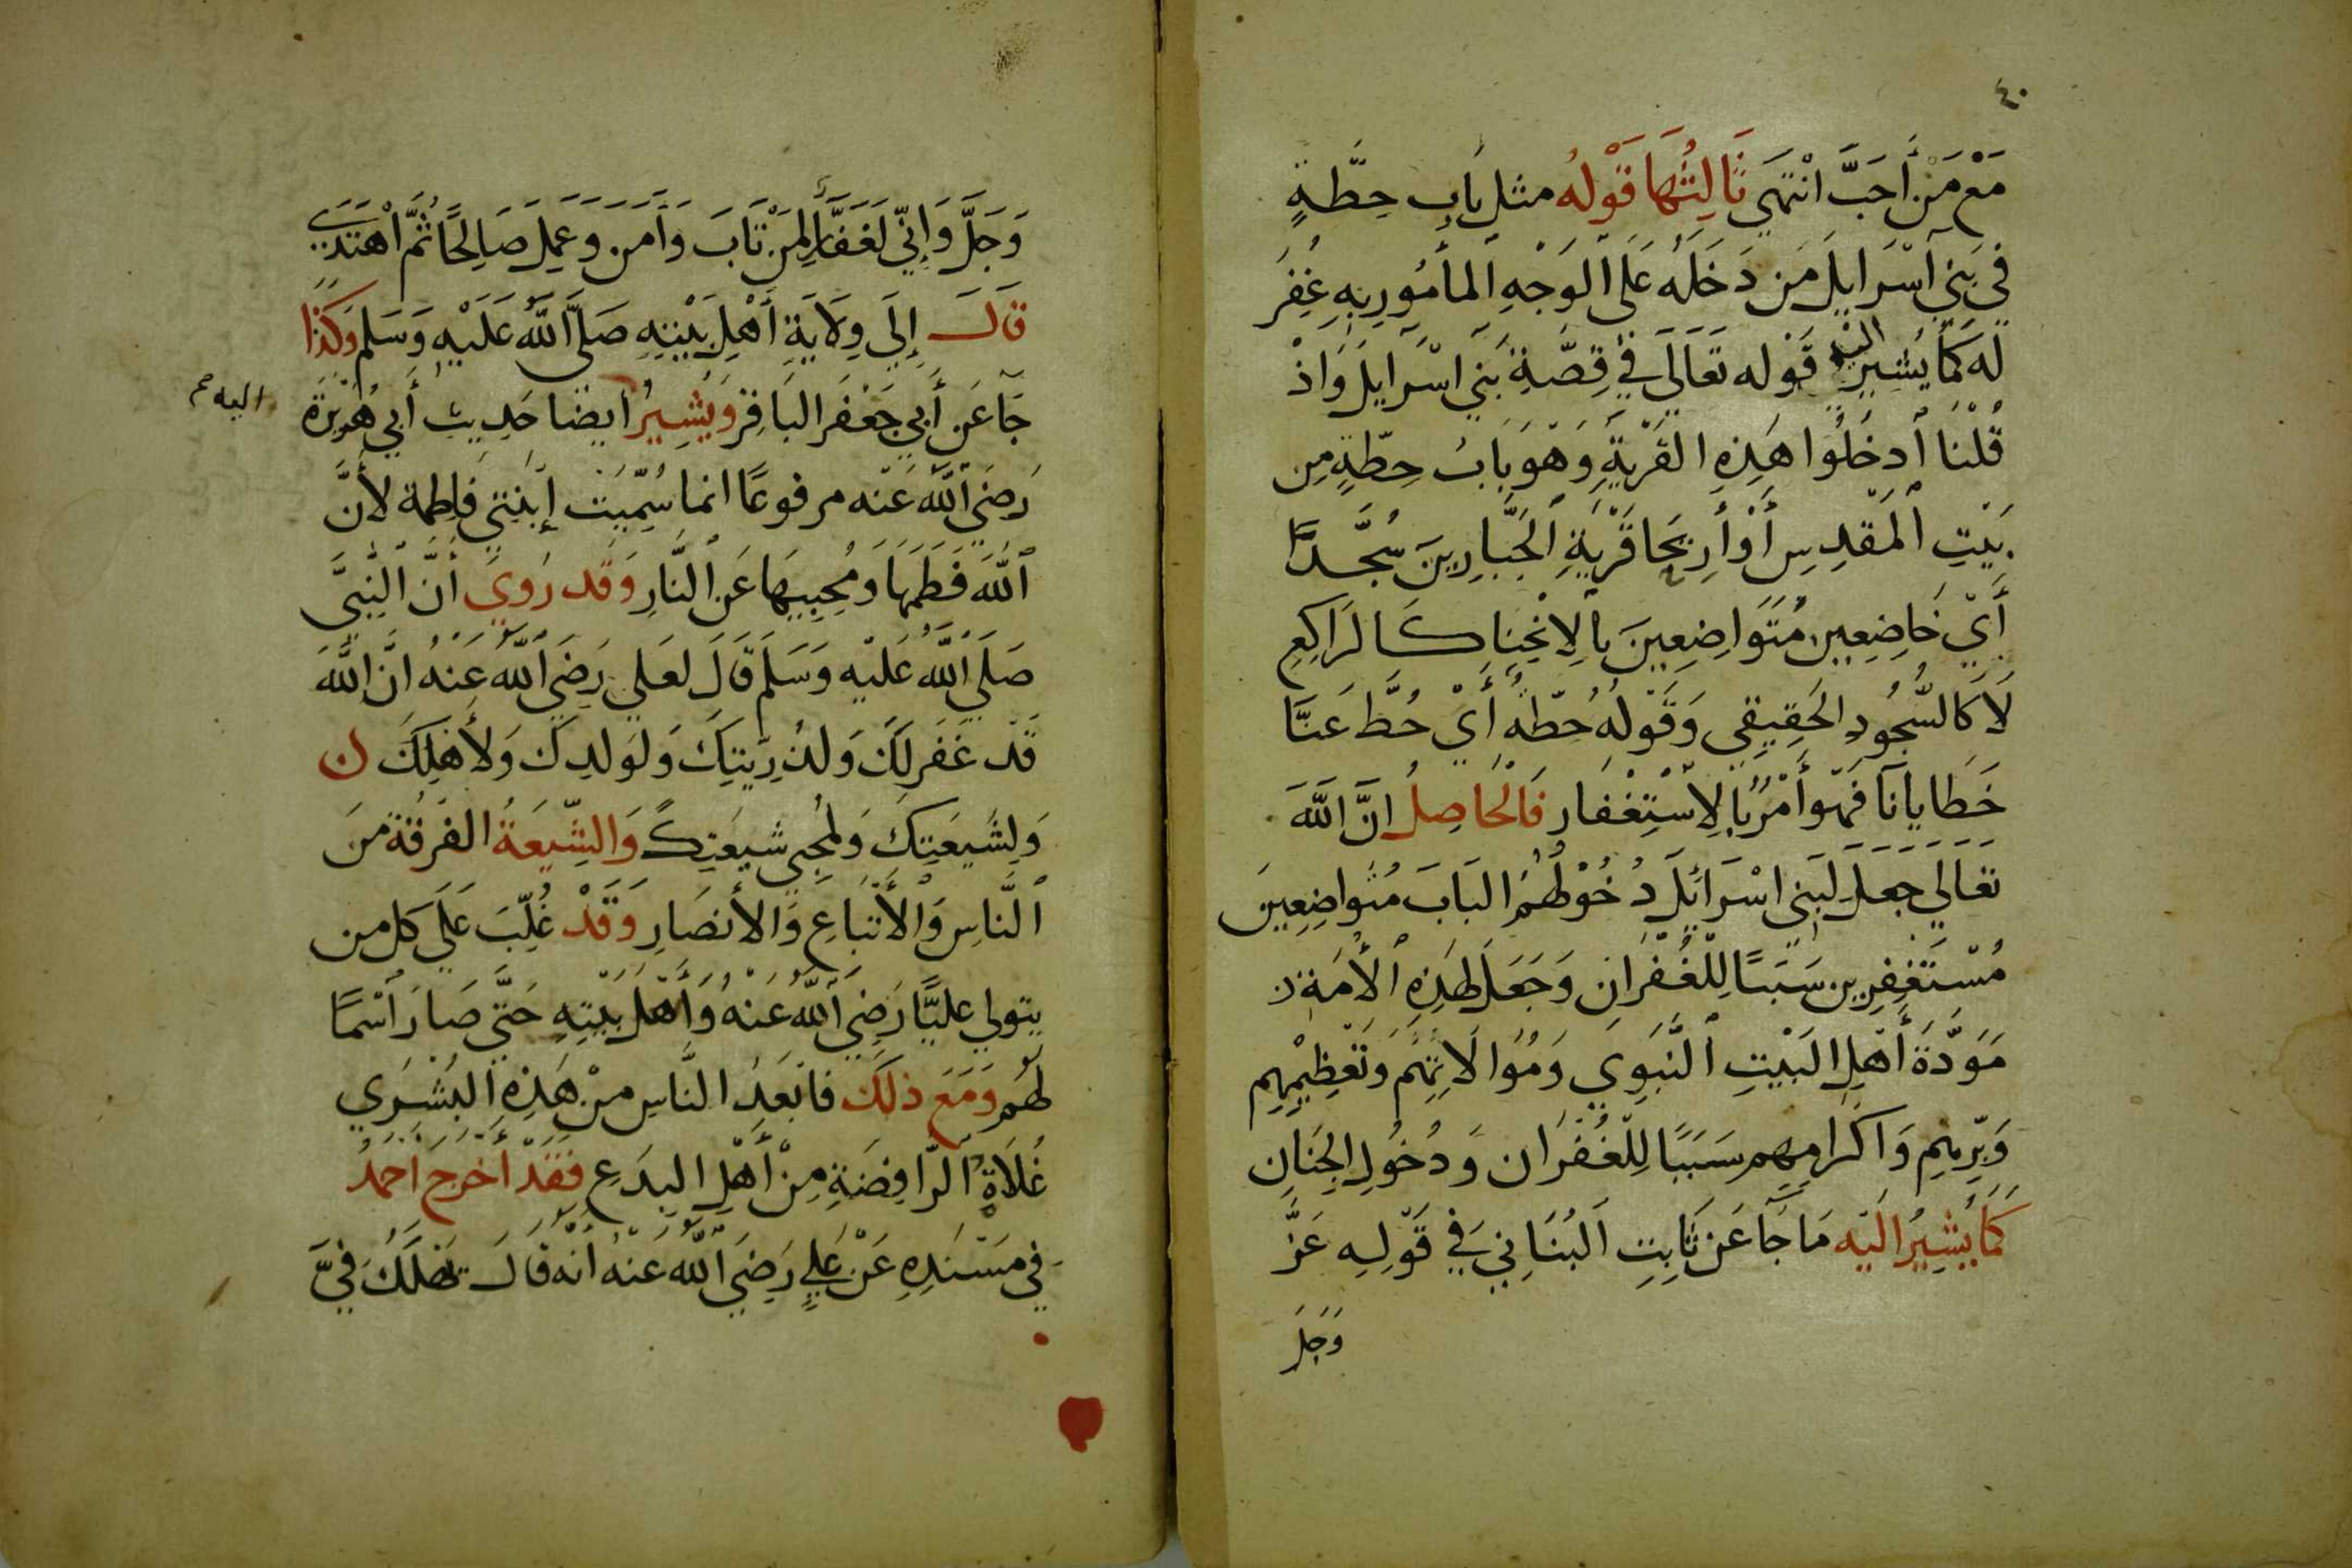 ٤٠
مَعْ مَنْ أَحَبَّ انْتَهَي ثَالِثُهَا قَوْلُه مثل بَابِ حِطَّةٍ
فِي بَنِي اسْرَايِلَ مَن دَخَلَه عَلَى الوَجْهِ المأمُورِ بِهِ غُفِرَ
لَه كَمَا يُشِيرُ اليه قَوْله تَعَالَى فِي قِصَّةِ بَنِي اسْرَايِلَ وَاذْ
قُلْنَا ادخُلُوا هَذِهِ القَرْيَةَ وَهْوَ بَابُ حِطّةٍ مِن
بَيْتِ المَقدِسِ أَوْ أَرِيحَا قَرْيَةِ الجَبَّارِينَ سُجَّدًا
أَيْ خَاضِعِين مُتَوَاضِعِينَ بِالِانْحِنَا كَالرَاكِعِ
لَا كَالسُّجُودِ الحَقِيقِي وَقَوْلُهُ حِطّة أَيْ حُطَّ عَنَّا
خَطايانَا فَهْوَ أَمْرٌ بِالِاسْتِغْفار فَالْحَاصِلُ انَّ اللَّهَ
تَعَالَي جَعَلَ لِبَنِي اسْرَائِلَ دُخُوْلَهُمُ البَابَ مُتَوَاضِعِينَ
مُسْتَغْفِرِين سَبَبًا لِلْغُفْرَانِ وَجَعَلَ لِهَذِهِ الأُمَةِ
مَوَدَّةَ أَهْلِ البَيْتِ النَّبَوِي وَمُوَالَاتِهِمْ وَتَعْظِيْمِهِم
وَبِرِّهِم وَاكْرَامِهِم سَبَبًا لِلْغُفْرَان وَدُخُولِ الجِنَانِ
كَمَا يُشِيرُ الَيْه مَا جَآ عَن ثَابِتِ البُنَانِي فِي قَوْلِه عَزَّ
وَجَلَ
وَجَلَّ وَإِنِّي لَغَفَّارٌ لِمَنْ تَابَ وَآمَن وَعَمِلَ صَالِحًا ثُمَّ اهْتَدَى
قَالَ إِلَى وِلَايَةِ أَهْلِ بَيْتِهِ صَلَّى اللَّهُ عَلَيْهِ وَسَلم وَكَذَا
جَآ عَن أَبِي جَعْفَر البَاقِر وَيُشِيرُ ايضا حَدِيث أَبِي هُرَيْرَة
اليه صح
رَضِيَ اللَّهُ عَنْه مرفوعًا انما سُمِّيَتْ إِبْنَتِي فاطمة لأَنَّ
اللَّهَ فَطَمَهَا وَمُحِبِيهَا عَنِ النَّارِ وَقَد رُوِيَ أَنَّ النَّبِيَّ
صَلَي اللَّهُ عَلَيْه وَسَلَم قَالَ لعَلي رَضِيَ اللَّهُ عَنْهُ انَّ اللَّهَ
قَدْ غَفَر لَكَ وَلِذُرِيّتِكَ وَلِوَلدِكَ وَلأَهْلِكَ
وَلِشَيعَتِكَ وَلِمُحِبِي شيعَتِكَ وَالشِّيعَةُ الفُرقَة منَ
النَّاسِ وَالأَتْبَاعِ وَالأَنصَارِ وَقَدْ غُلِّبَ عَلَي كل من
يتولي عليًّا رَضِيَ اللَّهُ عَنْهُ وَأَهْلَ بَيْتِهِ حَتَّى صَارَ اسْمًا
لَهُم وَمَعَ ذلكَ فابْعَدُ النَّاسِ مِنْ هَذِهِ البُشْرَي
غُلَاةُ الرَّافِضَةِ مِنْ أَهْلِ البِدَعِ فَقَدْ أَخْرَجَ احمَدُ
فِي مسْنَدِهِ عَنْ عَلِيٍ رَضِيَ اللَّهُ عَنْهُ أَنَّه قَالَ يَهْلَكُ فِيَّ